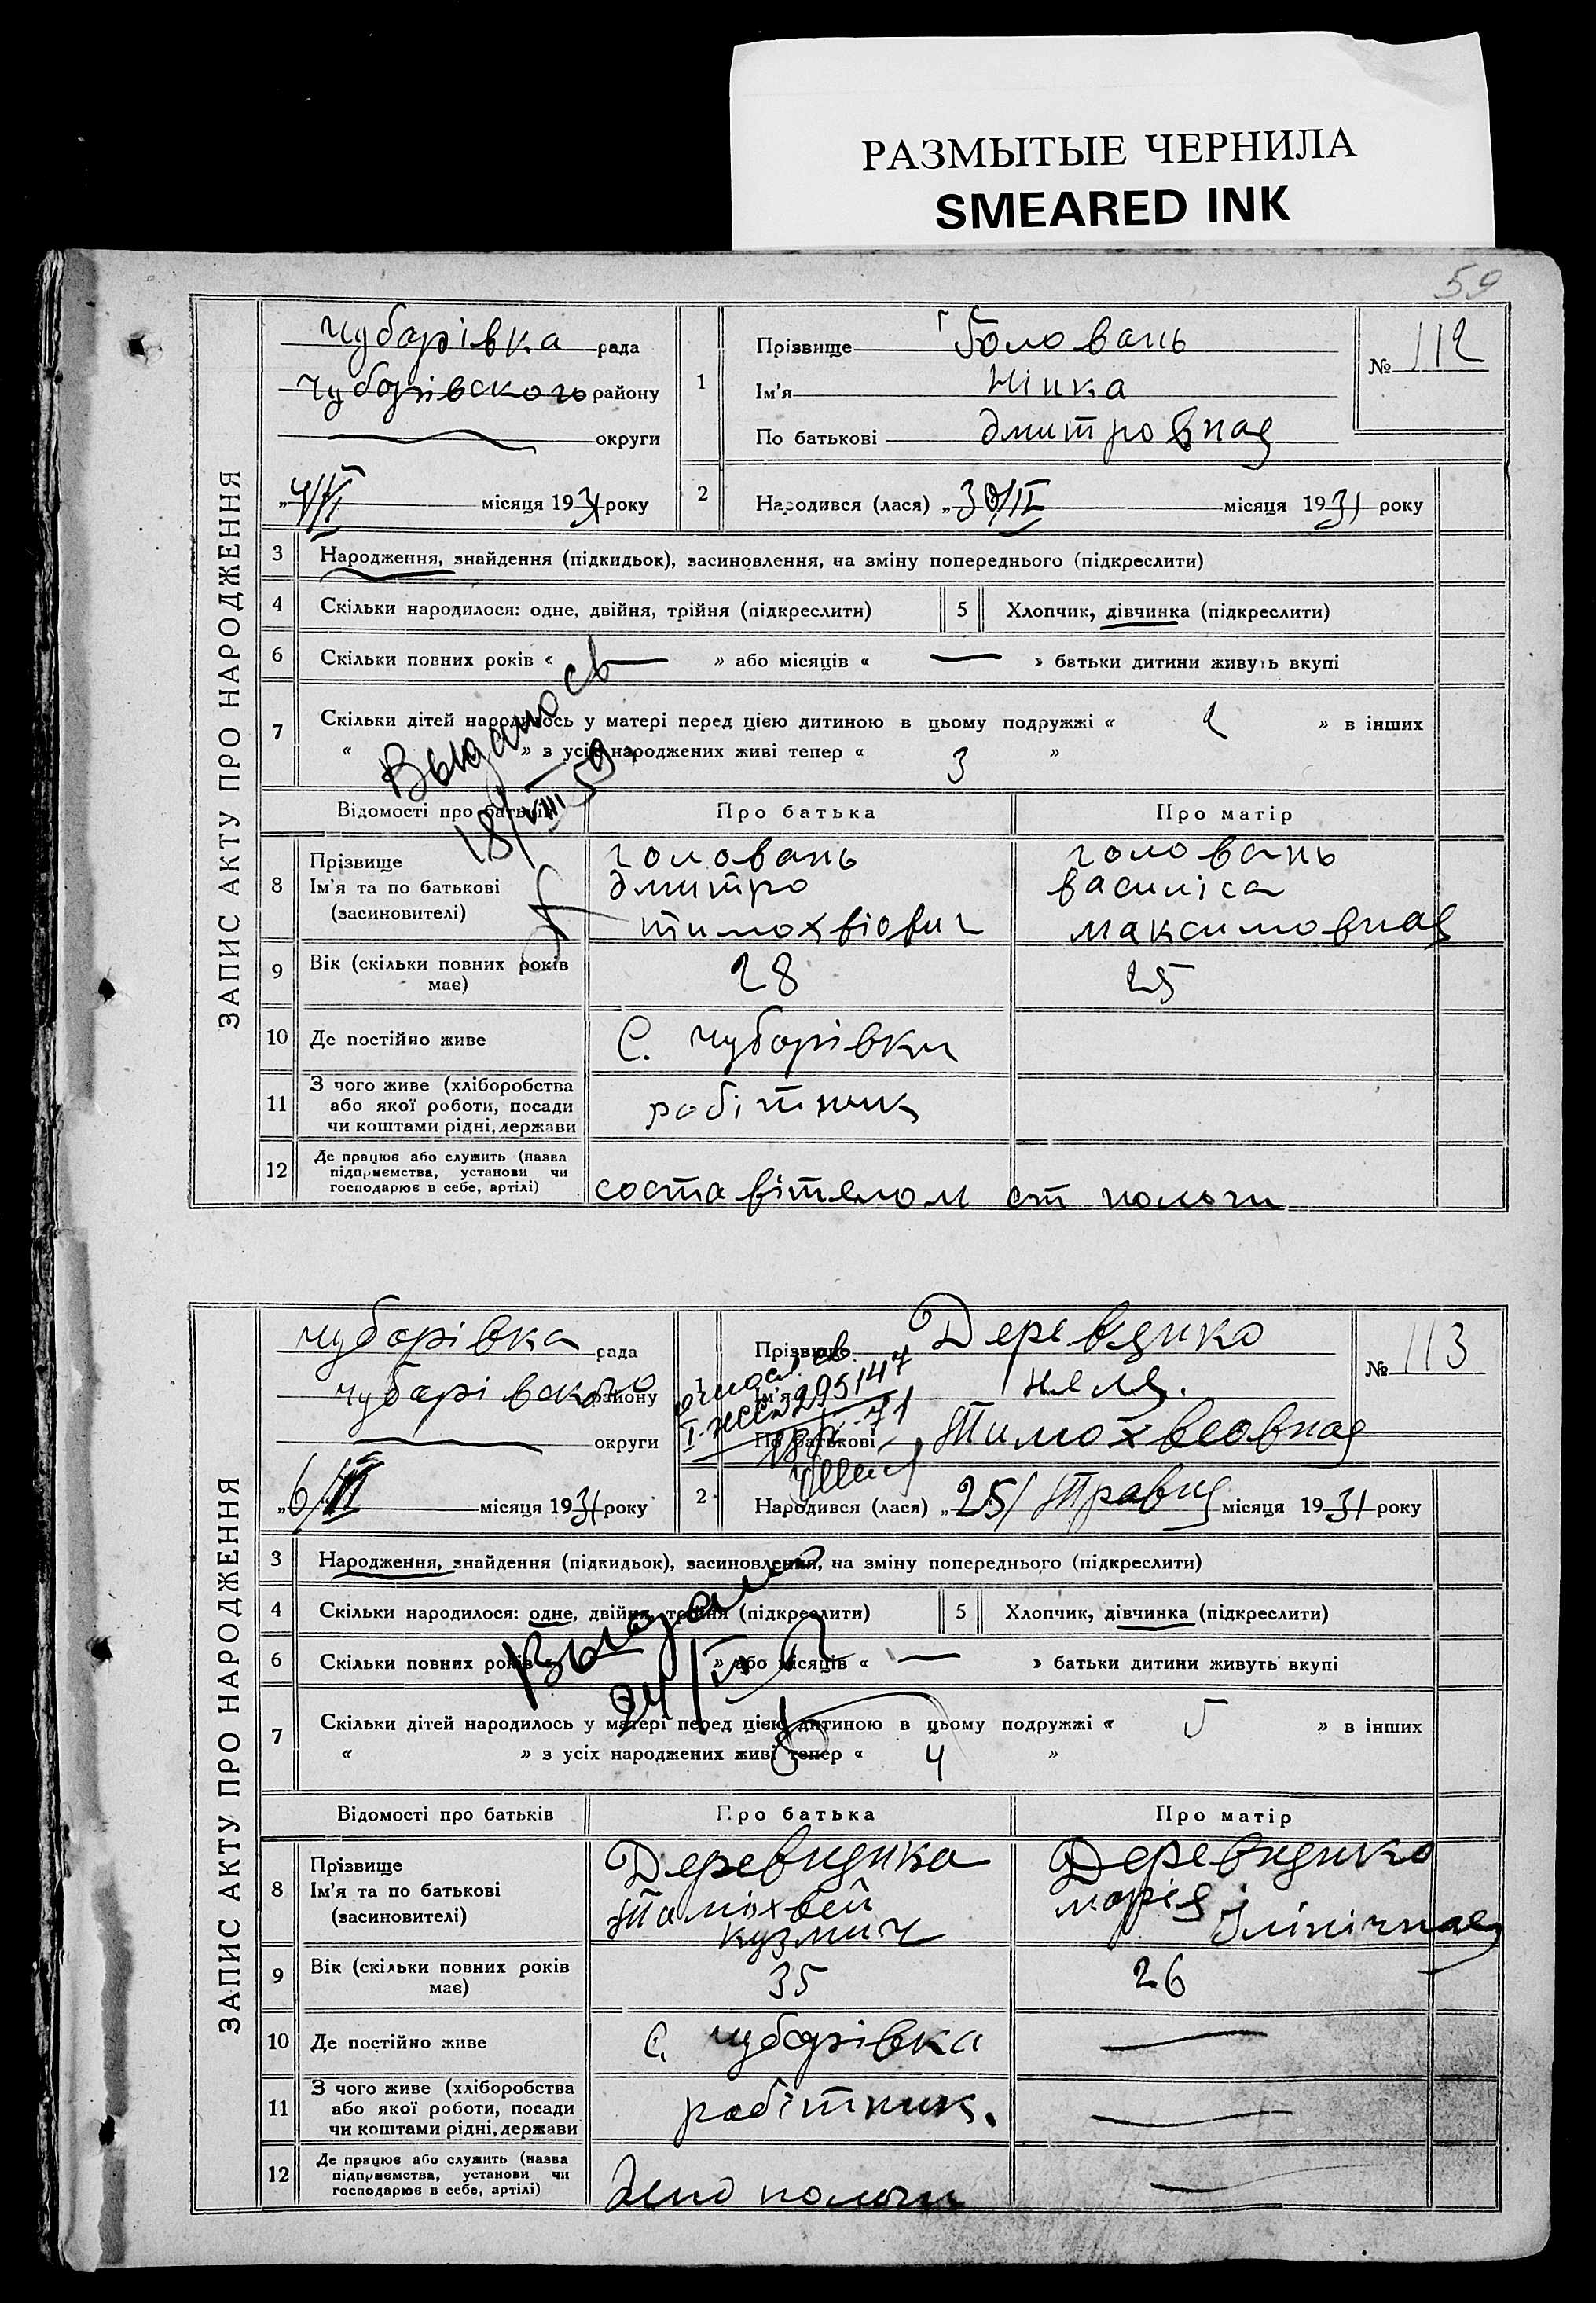 РАЗМЫТЫЕ ЧЕРНИЛА
SMEARED INK
59
ЗАПИС АКТУ ПРО НАРОДЖЕННЯ
Чубарівка рада
Чубарівского району
округи
„4/VI місяця 1931 року
1
Прізвище Головань
Ім'я Нінка
По батькові дмитровная
№ 112
2 Народився (лася) „30/IV місяця 1931 року
3 Народження, знайдення (підкидьок), засиновлення, на зміну попереднього (підкреслити)
4 Скільки народилося: одне, двійня, трійня (підкреслити)
5 Хлопчик, дівчинка (підкреслити)
6 Скільки повних років « » або місяців « » батьки дитини живуть вкупі
7 Скільки дітей народилось у матері перед цією дитиною в цьому подружжі « 2 » в інших
« » з усіх народжених живі тепер « 3 »
18/VIII 59
Відомості про батьків
Про батька
Про матір
8 Прізвище
Ім'я та по батькові
(засиновителі)
головань
дмитро
тимохвіович
головань
василіса
максимовная
9 Вік (скільки повних років
має)
28
25
10 Де постійно живе
С. чубарівки
11 З чого живе (хліборобства
або якої роботи, посади
чи коштами рідні, держави
робітник
12 Де працює або служить (назва
підприємства, установи чи
господарює в себе, артілі)
составітелом ст пологи
ЗАПИС АКТУ ПРО НАРОДЖЕННЯ
чубарівка рада
чубарівского району
округи
„6/VI місяця 1931 року
1
Прізвище Деревянко
Ім'я неля.
По батькові Тимохвеовная
№ 113
295147
2 Народився (лася) „25/ Травня місяця 1931 року
3 Народження, знайдення (підкидьок), засиновлення, на зміну попереднього (підкреслити)
4 Скільки народилося: одне, двійня, трійня (підкреслити)
5 Хлопчик, дівчинка (підкреслити)
6 Скільки повних років « » або місяців « » батьки дитини живуть вкупі
Выдано
7 Скільки дітей народилось у матері перед цією дитиною в цьому подружжі « 5 » в інших
« » з усіх народжених живі тепер « 4 »
Відомості про батьків
Про батька
Про матір
8 Прізвище
Ім'я та по батькові
(засиновителі)
Деревянка
Тимохвей
кузмич
Деревянко
марія
Ілінічная
9 Вік (скільки повних років
має)
35
26
10 Де постійно живе
С. чубарівка
11 З чого живе (хліборобства
або якої роботи, посади
чи коштами рідні, держави
робітник.
12 Де працює або служить (назва
підприємства, установи чи
господарює в себе, артілі)
Депо пологи